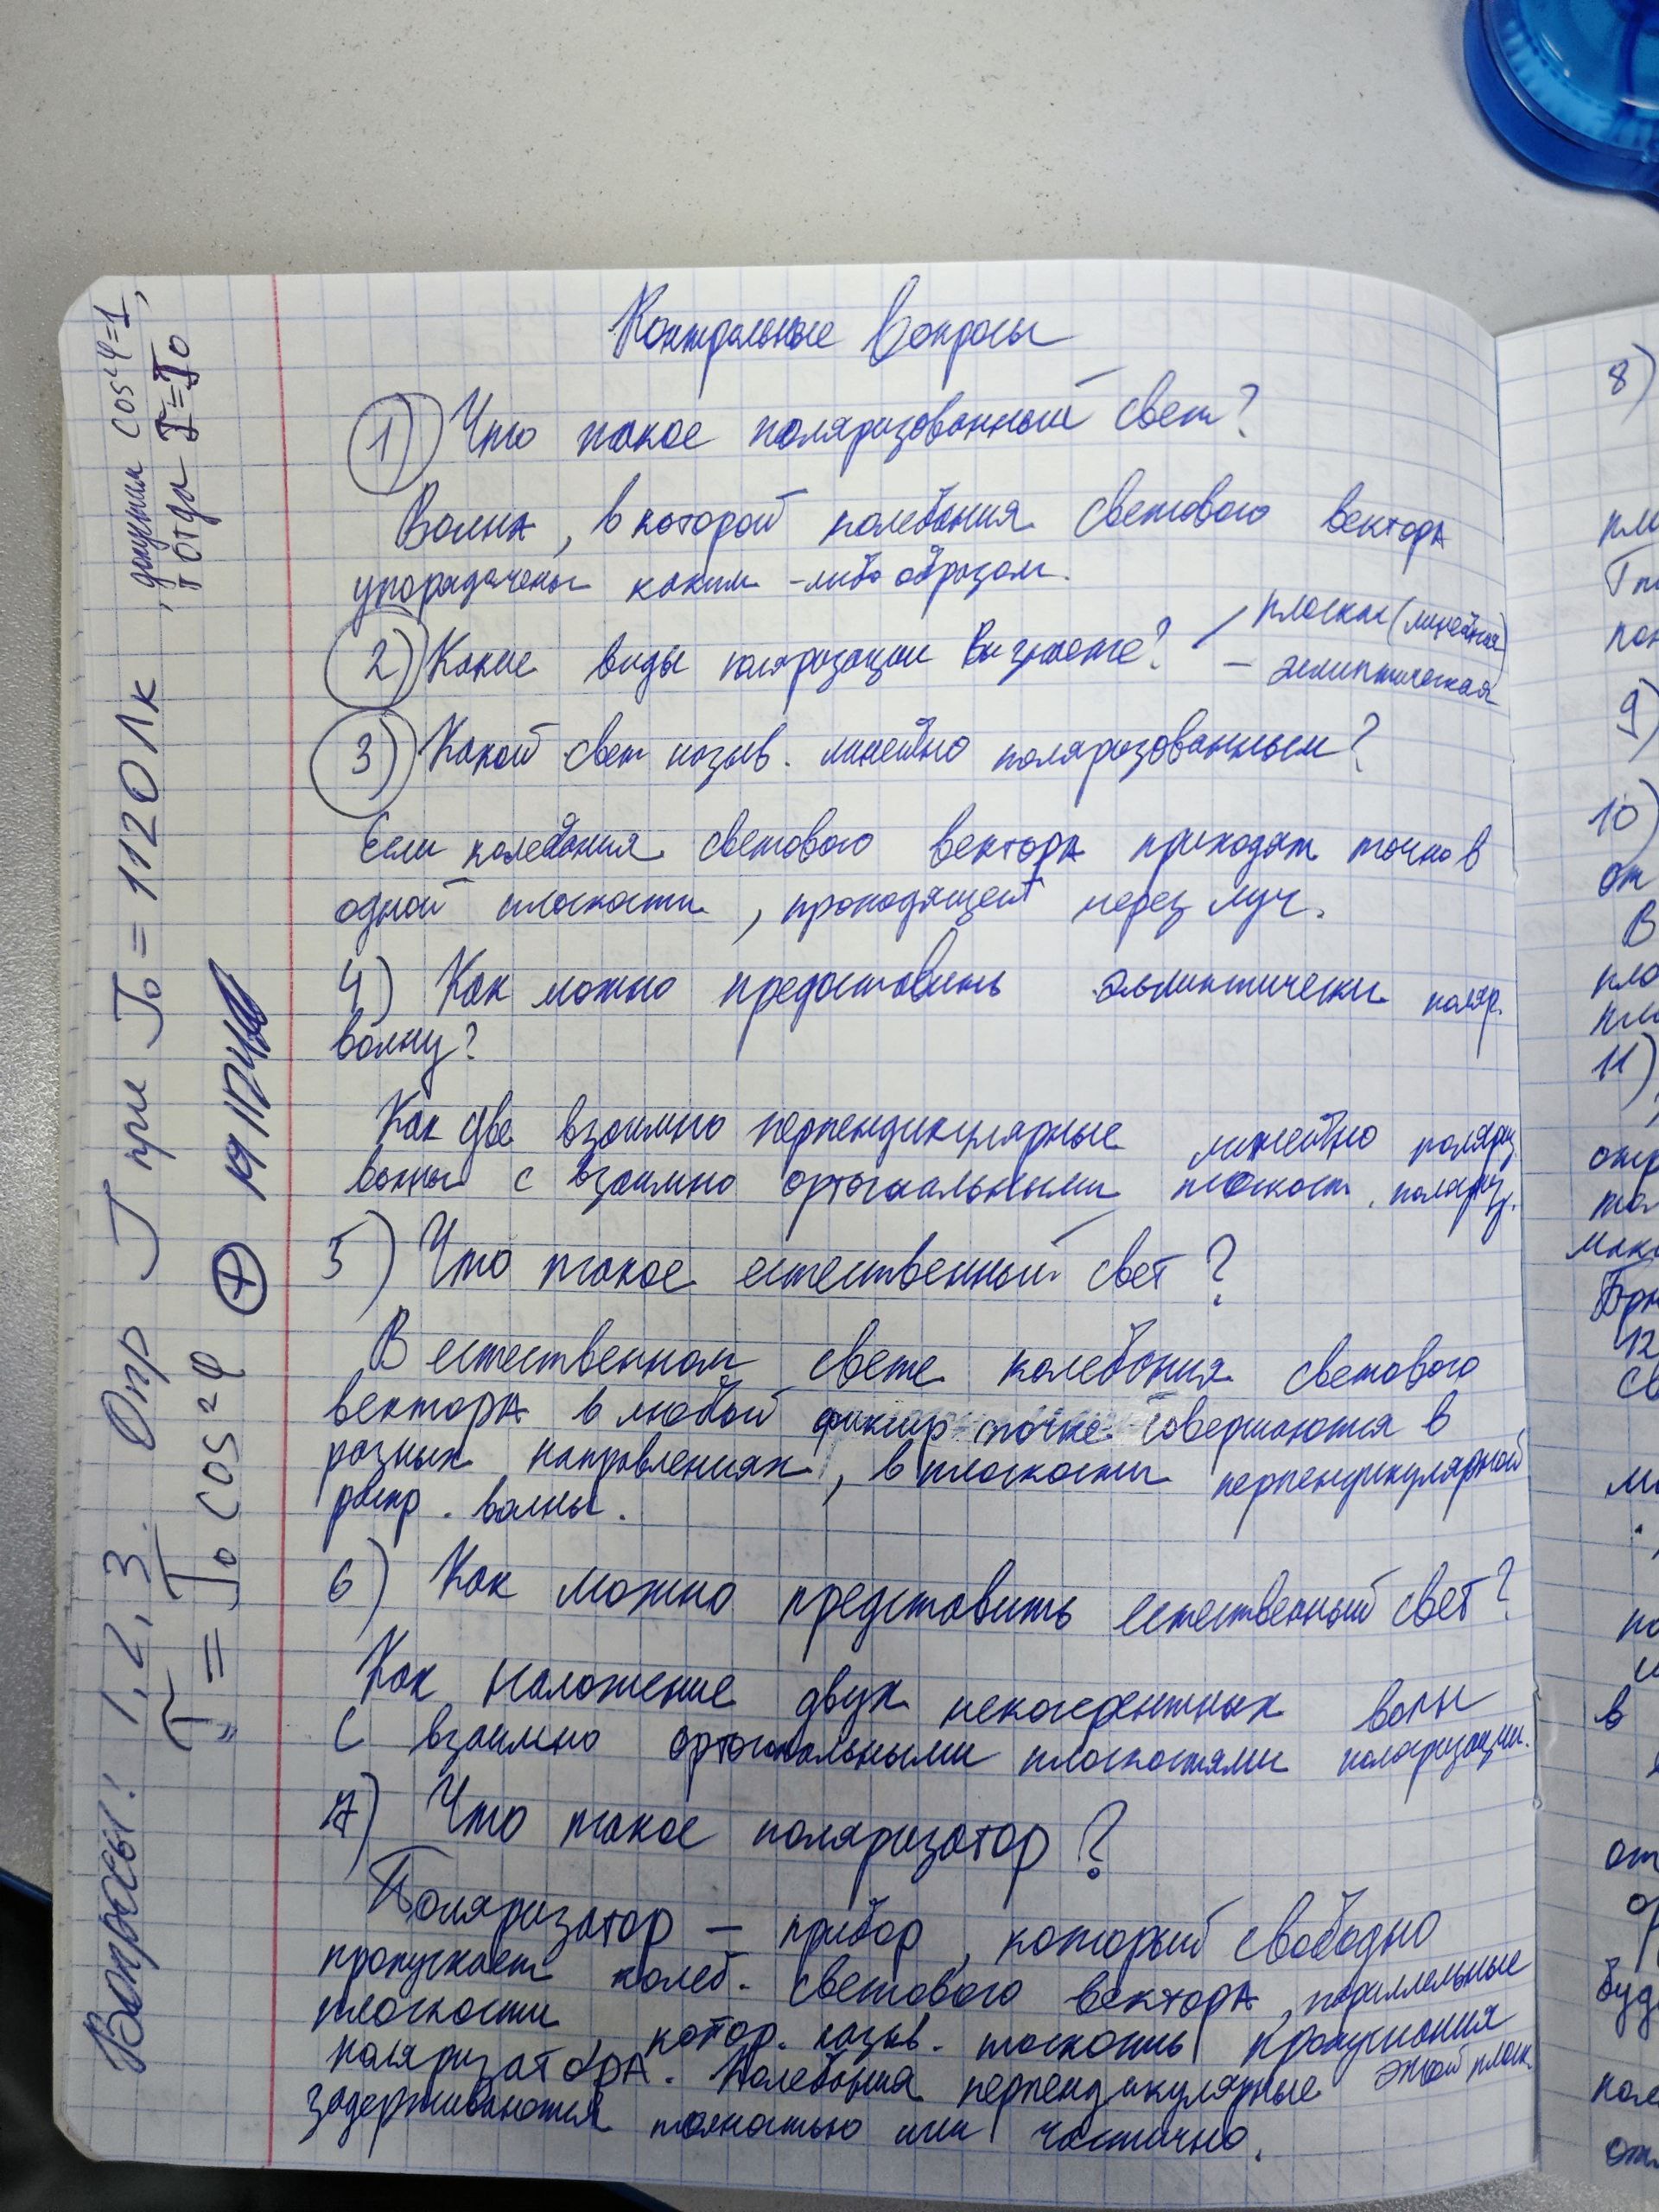 Контрольные вопросы
1) Что такое поляризованный свет?
Волна, в которой колебания светового вектора
упорядочены каким-либо образом.
2) Какие виды поляризации Вы знаете? - плоская (линейная)
- эллиптическая
3) Какой свет назыв. линейно поляризованным?
Если колебания светового вектора приходят точно в
одной плоскости, проходящей через луч.
4) Как можно представить эллиптически поляр.
волну?
Как две взаимно перпендикулярные линейно поляриз
волны с взаимно ортогональными плоскост. поляриз.
5) Что такое естественный свет?
В естественном свете колебания светового
вектора в любой фиксир точке совершаются в
разных направлениях, в плоскости перпендикулярной
распр. волны.
6) Как можно представить естественный свет?
Как наложение двух некогерентных волн
с взаимно ортогональными плоскостями поляризации.
7) Что такое поляризатор?
Поляризатор – прибор, который свободно
пропускает колеб. светового вектора, параллельные
плоскости котор. назыв. плоскость пропускания
поляризатора. Колебания перпендикулярные этой плоск.
задерживаются полностью или частично.
Вопросы: 1, 2, 3. Опр J при J₀ = 1120 Лк, допустим cos²φ=1,
тогда J=J₀
J = J₀ cos²φ ⊕
8)
9)
10)
от
В
пло
11)
12
св
в
буд